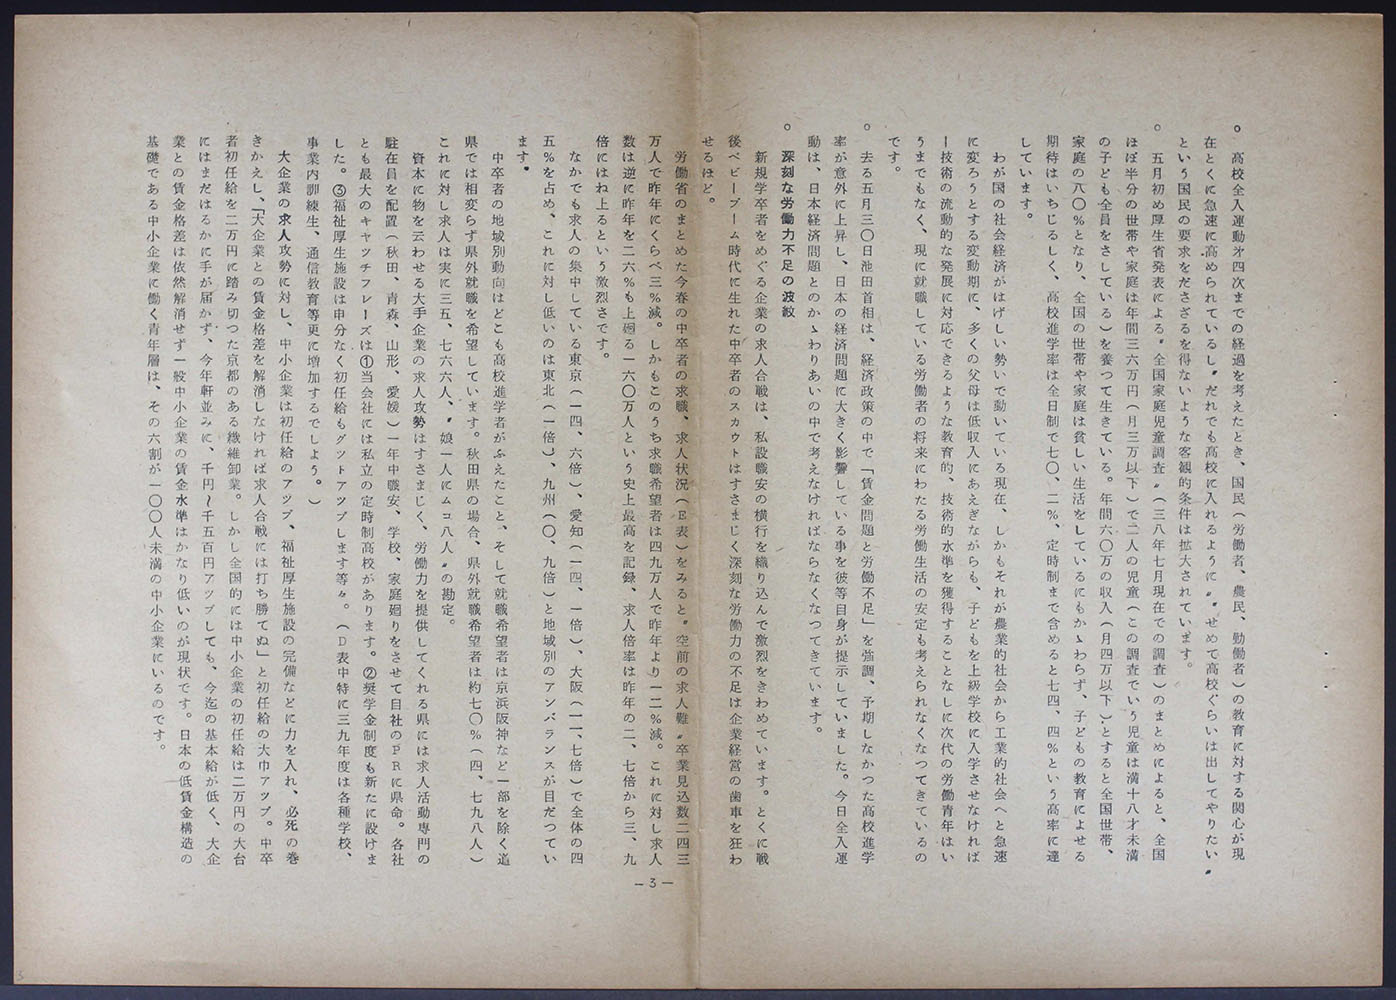 ○ 高校全入運動㐧四次までの経過を考えたとき、国民(労働者、農民、勤働者)の教育に対する関心が現
在とくに急速に高められているし〝だれでも高校に入れるように〟〝せめて高校ぐらいは出してやりたい〟
という国民の要求をださざるを得ないような客観的条件は拡大されています。
○ 五月初め厚生省発表による〝全国家庭児童調査〟(三八年七月現在での調査)のまとめによると、全国
ほぼ半分の世帯や家庭は年間三六万円(月三万以下)で二人の児童(この調査でいう児童は満十八才未満
の子ども全員をさしている)を養つて生きている。年間六〇万の収入(月四万以下)とすると全国世帯、
家庭の八〇%となり、全国の世帯や家庭は貧しい生活をしているにもかゝわらず、子どもの教育によせる
期待はいちじるしく、高校進学率は全日制で七〇、二%、定時制まで含めると七四、四%という高率に達
しています。
わが国の社会経済がはげしい勢いで動いている現在、しかもそれが農業的社会から工業的社会へと急速
に変ろうとする変動期に、多くの父母は低収入にあえぎながらも、子どもを上級学校に入学させなければ
ー技術の流動的な発展に対応できるような教育的、技術的水準を獲得することなしに次代の労働青年はい
うまでもなく、現に就職している労働者の将来にわたる労働生活の安定も考えられなくなつてきているの
です。
○ 去る五月三〇日池田首相は、経済政策の中で「賃金問題と労働不足」を強調、予期しなかつた高校進学
率が意外に上昇し、日本の経済問題に大きく影響している事を彼等自身が提示していました。今日全入運
動は、日本経済問題とのかゝわりあいの中で考えなければならなくなつてきています。
○ 深刻な労働力不足の波紋
新規学卒者をめぐる企業の求人合戦は、私設職安の横行を織り込んで激烈をきわめています。とくに戦
後ベビーブーム時代に生れた中卒者のスカウトはすさまじく深刻な労働力の不足は企業経営の歯車を狂わ
せるほど。
労働省のまとめた今春の中卒者の求職、求人状況(E表)をみると〝空前の求人難〟卒業見込数二四三
万人で昨年にくらべ三%減。しかもこのうち求職希望者は四九万人で昨年より一二%減。これに対し求人
数は逆に昨年を二六%も上廻る一六〇万人という史上最高を記録、求人倍率は昨年の二、七倍から三、九
倍にはね上るという激烈さです。
なかでも求人の集中している東京(一四、六倍)、愛知(一四、一倍)、大阪(一一、七倍)で全体の四
五%を占め、これに対し低いのは東北(一倍)、九州(〇、九倍)と地域別のアンバランスが目だつてい
ます。
中卒者の地域別動向はどこも高校進学者がふえたこと、そして就職希望者は京浜阪神など一部を除く道
県では相変らず県外就職を希望しています。秋田県の場合、県外就職希望者は約七〇%(四、七九八人)
これに対し求人は実に三五、七六六人、〝娘一人にムコ八人〟の勘定。
資本に物を云わせる大手企業の求人攻勢はすさまじく、労働力を提供してくれる県には求人活動専門の
駐在員を配置(秋田、青森、山形、愛媛)一年中職安、学校、家庭廻りをさせて自社のPRに県命。各社
とも最大のキャッチフレーズは①当会社には私立の定時制高校があります。②奨学金制度も新たに設けま
した。③福祉厚生施設は申分なく初任給もグットアップします等々。(D表中特に三九年度は各種学校、
事業内訓練生、通信教育等更に増加するでしよう。)
大企業の求人攻勢に対し、中小企業は初任給のアップ、福祉厚生施設の完備などに力を入れ、必死の巻
きかえし、「大企業との賃金格差を解消しなければ求人合戦には打ち勝てぬ」と初任給の大巾アップ。中卒
者初任給を二万円に踏み切つた京都のある繊維卸業。しかし全国的には中小企業の初任給は二万円の大台
にはまだはるかに手が届かず、今年軒並みに、千円〜千五百円アップしても、今迄の基本給が低く、大企
業との賃金格差は依然解消せず一般中小企業の賃金水準はかなり低いのが現状です。日本の低賃金構造の
基礎である中小企業に働く青年層は、その六割が一〇〇人未満の中小企業にいるのです。
－3－